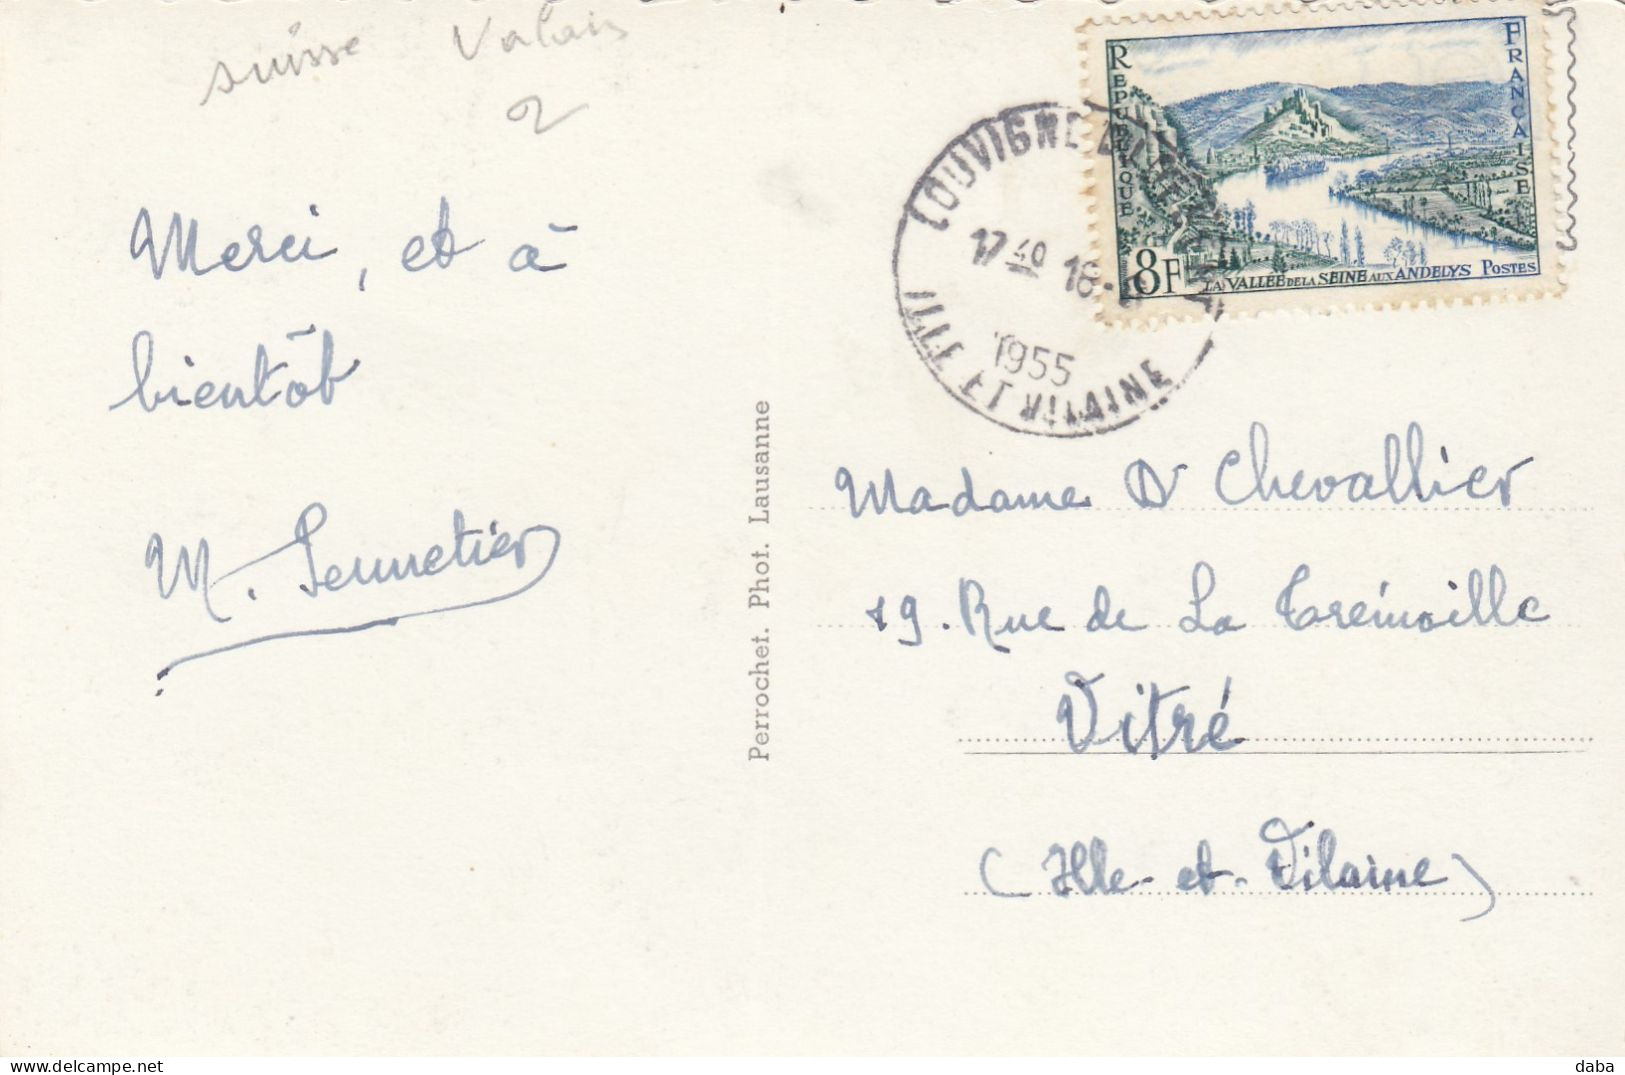 suisse Valais
2
Merci, et à
bientôt
Perrochet. Phot. Lausanne
REPUBLIQUE
FRANCAISE
8F
LA VALLEE DE LA SEINE AUX ANDELYS POSTES
LOUVIGNE
17 40 18-
1955
ILLE ET VILAINE
Madame Dr Chevallier
19. Rue de La Trémoille
Vitré
(Ille-et-Vilaine)
daba